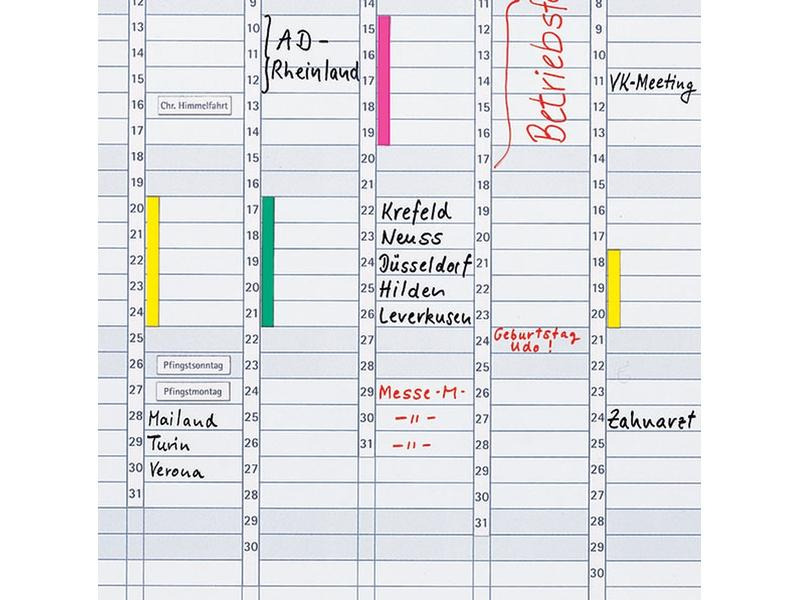 12
13
14
15
16 Chr. Himmelfahrt
17
18
19
20
21
22
23
24
25
26 Pfingstsonntag
27 Pfingstmontag
28 Mailand
29 Turin
30 Verona
31
9
10 AD-
11
12 Rheinland
13
14
15
16
17
18
19
20
21
22
23
24
25
26
27
28
29
30
14
15
16
17
18
19
20
21
22 Krefeld
23 Neuss
24 Düsseldorf
25 Hilden
26 Leverkusen
27
28
29 Messe-M-
30 -"-
31 -"-
11
12
13
14
15
16
17
18
19
20
21
22
23
24 Geburtstag
Udo!
25
26
27
28
29
30
31
8
9
10
11 VK-Meeting
12
13
14
15
16
17
18
19
20
21
22
23
24 Zahnarzt
25
26
27
28
29
30